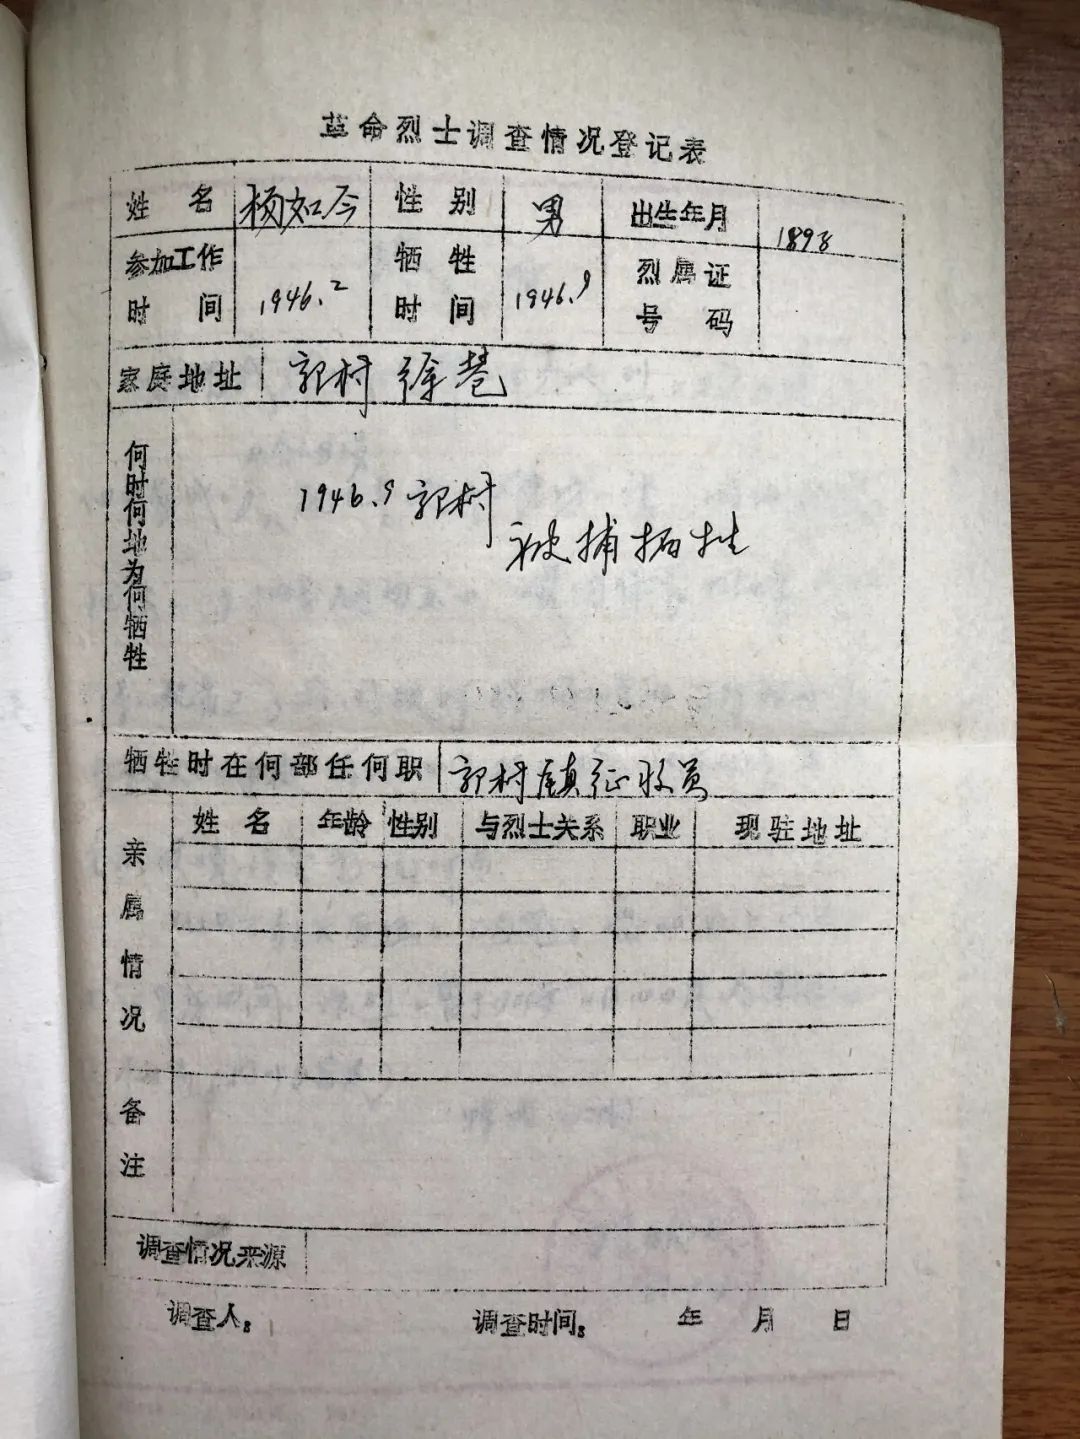 革命烈士调查情况登记表
姓名 杨如今 性别 男 出生年月 1898
参加工作时间 1946.2 牺牲时间 1946.9 烈属证号码
家庭地址 郭村 徐巷
何时何地为何牺牲
1946.9 郭村
被捕牺牲
牺牲时在何部任何职 郭村镇征收员
亲属情况
姓名 年龄 性别 与烈士关系 职业 现驻地址
备注
调查情况来源
调查人: 调查时间: 年 月 日